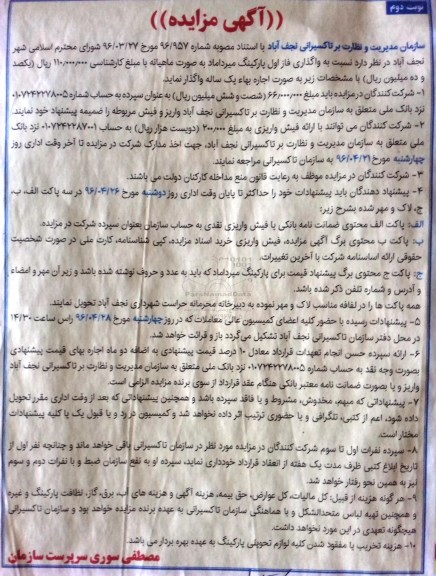 نوبت دوم
((آگهی مزایده))
سازمان مدیریت و نظارت بر تاکسیرانی نجف آباد با استناد مصوبه شماره ۹۶/۹۵۷ مورخ ۹۶/۰۳/۲۷ شورای محترم اسلامی شهر
نجف آباد در نظر دارد نسبت به واگذاری فاز اول پارکینگ میرداماد به صورت ماهیانه با مبلغ کارشناسی ۱۱۰/۰۰۰/۰۰۰ ریال (یکصد
و ده میلیون ریال) با مشخصات زیر به صورت اجاره بهاء یک ساله واگذار نماید.
۱- شرکت کنندگان در مزایده باید مبلغ ۶۶/۰۰۰/۰۰۰ (شصت و شش میلیون ریال) به عنوان سپرده به حساب شماره ۰۱۰۷۲۴۲۲۷۸۰۰۵
نزد بانک ملی متعلق به سازمان مدیریت و نظارت بر تاکسیرانی نجف آباد واریز و فیش مربوطه را ضمیمه پیشنهاد خود نمایند.
۲- شرکت کنندگان می توانند با ارائه فیش واریزی به مبلغ ۲۰۰/۰۰۰ (دویست هزار ریال) به حساب ۰۱۰۷۲۴۲۲۸۷۰۰۱ نزد بانک
ملی متعلق به سازمان مدیریت و نظارت بر تاکسیرانی نجف آباد، جهت اخذ مدارک شرکت در مزایده تا آخر وقت اداری روز
چهارشنبه مورخ ۹۶/۰۴/۲۱ به سازمان تاکسیرانی مراجعه نمایند.
۳- شرکت کنندگان در مزایده موظف به رعایت قانون منع مداخله کارکنان دولت می باشند.
۴- پیشنهاد دهندگان باید پیشنهادات خود را حداکثر تا پایان وقت اداری روز دوشنبه مورخ ۹۶/۰۴/۲۶ در سه پاکت الف، ب،
ج، لاک و مهر شده بشرح زیر:
الف: پاکت الف محتوی ضمانت نامه بانکی یا فیش واریزی نقدی به حساب سازمان بعنوان سپرده شرکت در مزایده.
ب: پاکت ب محتوی برگ آگهی مزایده، فیش واریزی خرید اسناد مزایده، کپی شناسنامه، کارت ملی در صورت شخصیت
حقوقی ارائه اساسنامه شرکت با آخرین تغییرات.
ج: پاکت ج محتوی برگ پیشنهاد قیمت برای پارکینگ میرداماد که باید به عدد و حروف نوشته شده باشد و زیر آن مهر و امضاء
و آدرس و شماره تلفن ذکر شده باشد.
همه پاکت ها را در لفافه مناسب لاک و مهر نموده به دبیرخانه محرمانه حراست شهرداری نجف آباد تحویل نمایند.
۵- پیشنهادات رسیده با حضور کلیه اعضای کمیسیون عالی معاملات که در روز چهارشنبه مورخ ۹۶/۰۴/۲۸ راس ساعت ۱۴/۳۰
در محل دفتر سازمان تاکسیرانی نجف آباد تشکیل می گردد باز و قرائت خواهد شد.
۶- ارائه سپرده حسن انجام تعهدات قرارداد معادل ۱۰ درصد قیمت پیشنهادی به اضافه دو ماه اجاره بهای قیمت پیشنهادی
بصورت وجه نقد به حساب شماره ۰۱۰۷۲۴۲۲۷۸۰۰۵ نزد بانک ملی متعلق به سازمان مدیریت و نظارت بر تاکسیرانی نجف آباد
واریز و یا بصورت ضمانت نامه معتبر بانکی هنگام عقد قرارداد از سوی برنده مزایده الزامی است.
۷- پیشنهاداتی که مبهم، مخدوش، مشروط و یا فاقد سپرده باشد و همچنین پیشنهاداتی که بعد از وقت اداری مقرر تحویل
داده شود، اعم از کتبی، تلگرافی و یا حضوری ترتیب اثر داده نخواهد شد و کمیسیون در رد و یا قبول یک یا کلیه پیشنهادات
مختار است.
۸- سپرده نفرات اول تا سوم شرکت کنندگان در مزایده مورد نظر در سازمان تاکسیرانی باقی خواهد ماند و چنانچه نفر اول از
تاریخ ابلاغ کتبی ظرف مدت یک هفته از انعقاد قرارداد خودداری نماید، سپرده او به نفع سازمان ضبط و با نفرات دوم و سوم
نیز به همین نحو رفتار خواهد شد.
۹- هر گونه هزینه از قبیل: کل مالیات، کل عوارض، حق بیمه، هزینه آگهی و هزینه های آب، برق، گاز، نظافت پارکینگ و غیره
و همچنین تهیه لباس متحدالشکل و با هماهنگی سازمان تاکسیرانی به عهده برنده مزایده خواهد بود و سازمان تاکسیرانی
هیچگونه تعهدی در این مورد نخواهد داشت.
۱۰- هزینه تخریب یا مفقود شدن کلیه لوازم تحویلی پارکینگ به عهده بهره بردار می باشد.
مصطفی سوری سرپرست سازمان